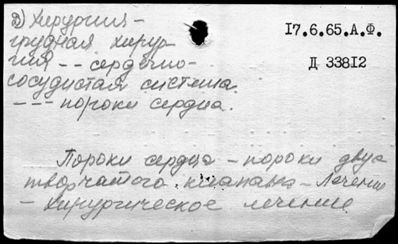 2) Хирургия -
грудная хирур-
гия -- сердечно-
сосудистая система.
--- пороки сердца.
17.6.65.А.Ф.
Д 33812
Пороки сердца - пороки двух
творчатого клапана - Лечение
- Хирургическое лечение